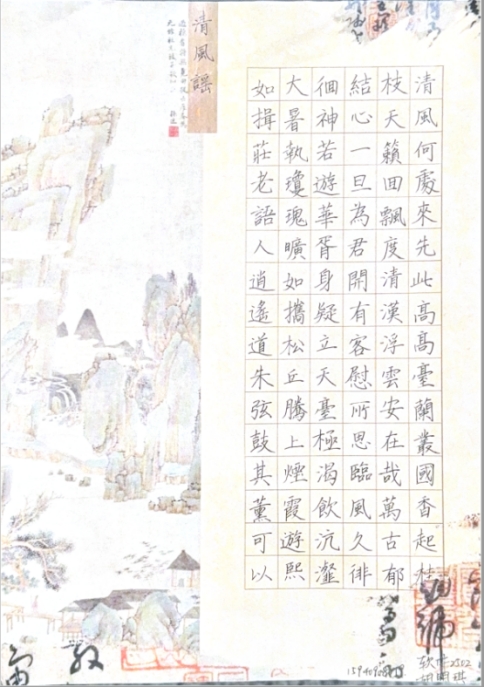 清風謠
清風何處來先此高高臺蘭叢國香起桂
枝天籟囬飄度清漢浮雲安在哉萬古郁
結心一旦為君開有客慰所思臨風久徘
徊神若遊華胥身疑立天臺極渴飲沆瀣
大暑執瓊瑰曠如攜松丘騰上煙霞遊熙
如揖莊老語人逍遙道朱弦鼓其薰可以
软件2302